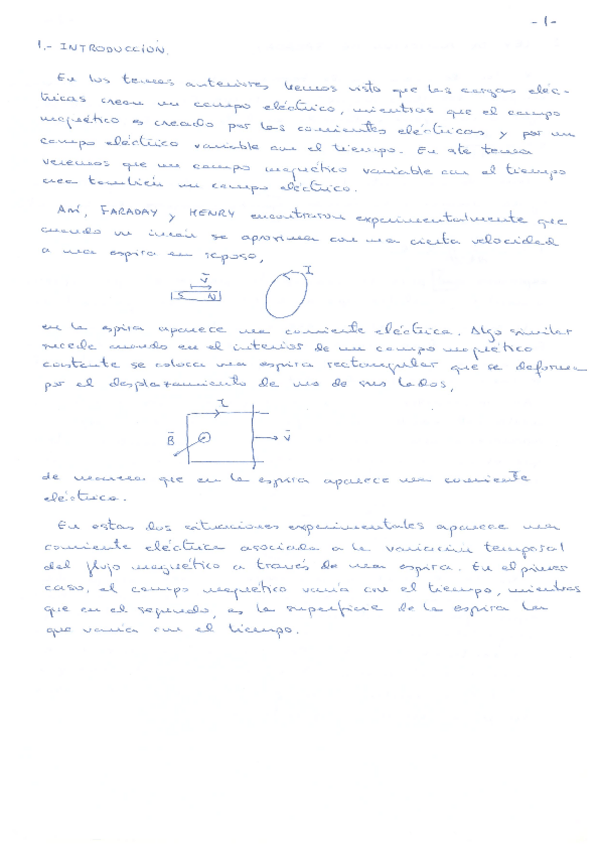 -1-
1.- INTRODUCCIÓN.
En los temas anteriores hemos visto que las cargas eléc-
tricas crean un campo eléctrico, mientras que el campo
magnético es creado por las corrientes eléctricas y por un
campo eléctrico variable con el tiempo. En este tema
veremos que un campo magnético variable con el tiempo
crea también un campo eléctrico.
Así, FARADAY y HENRY encontraron experimentalmente que
cuando un imán se aproxima con una cierta velocidad
a una espira en reposo,
v I
S N
en la espira aparece una corriente eléctrica. Algo similar
sucede cuando en el interior de un campo magnético
constante se coloca una espira rectangular que se deforma
por el desplazamiento de uno de sus lados,
I
B v
de manera que en la espira aparece una corriente
eléctrica.
En estas dos situaciones experimentales aparece una
corriente eléctrica asociada a la variación temporal
del flujo magnético a través de una espira. En el primer
caso, el campo magnético varía con el tiempo, mientras
que en el segundo, es la superficie de la espira la
que varía con el tiempo.